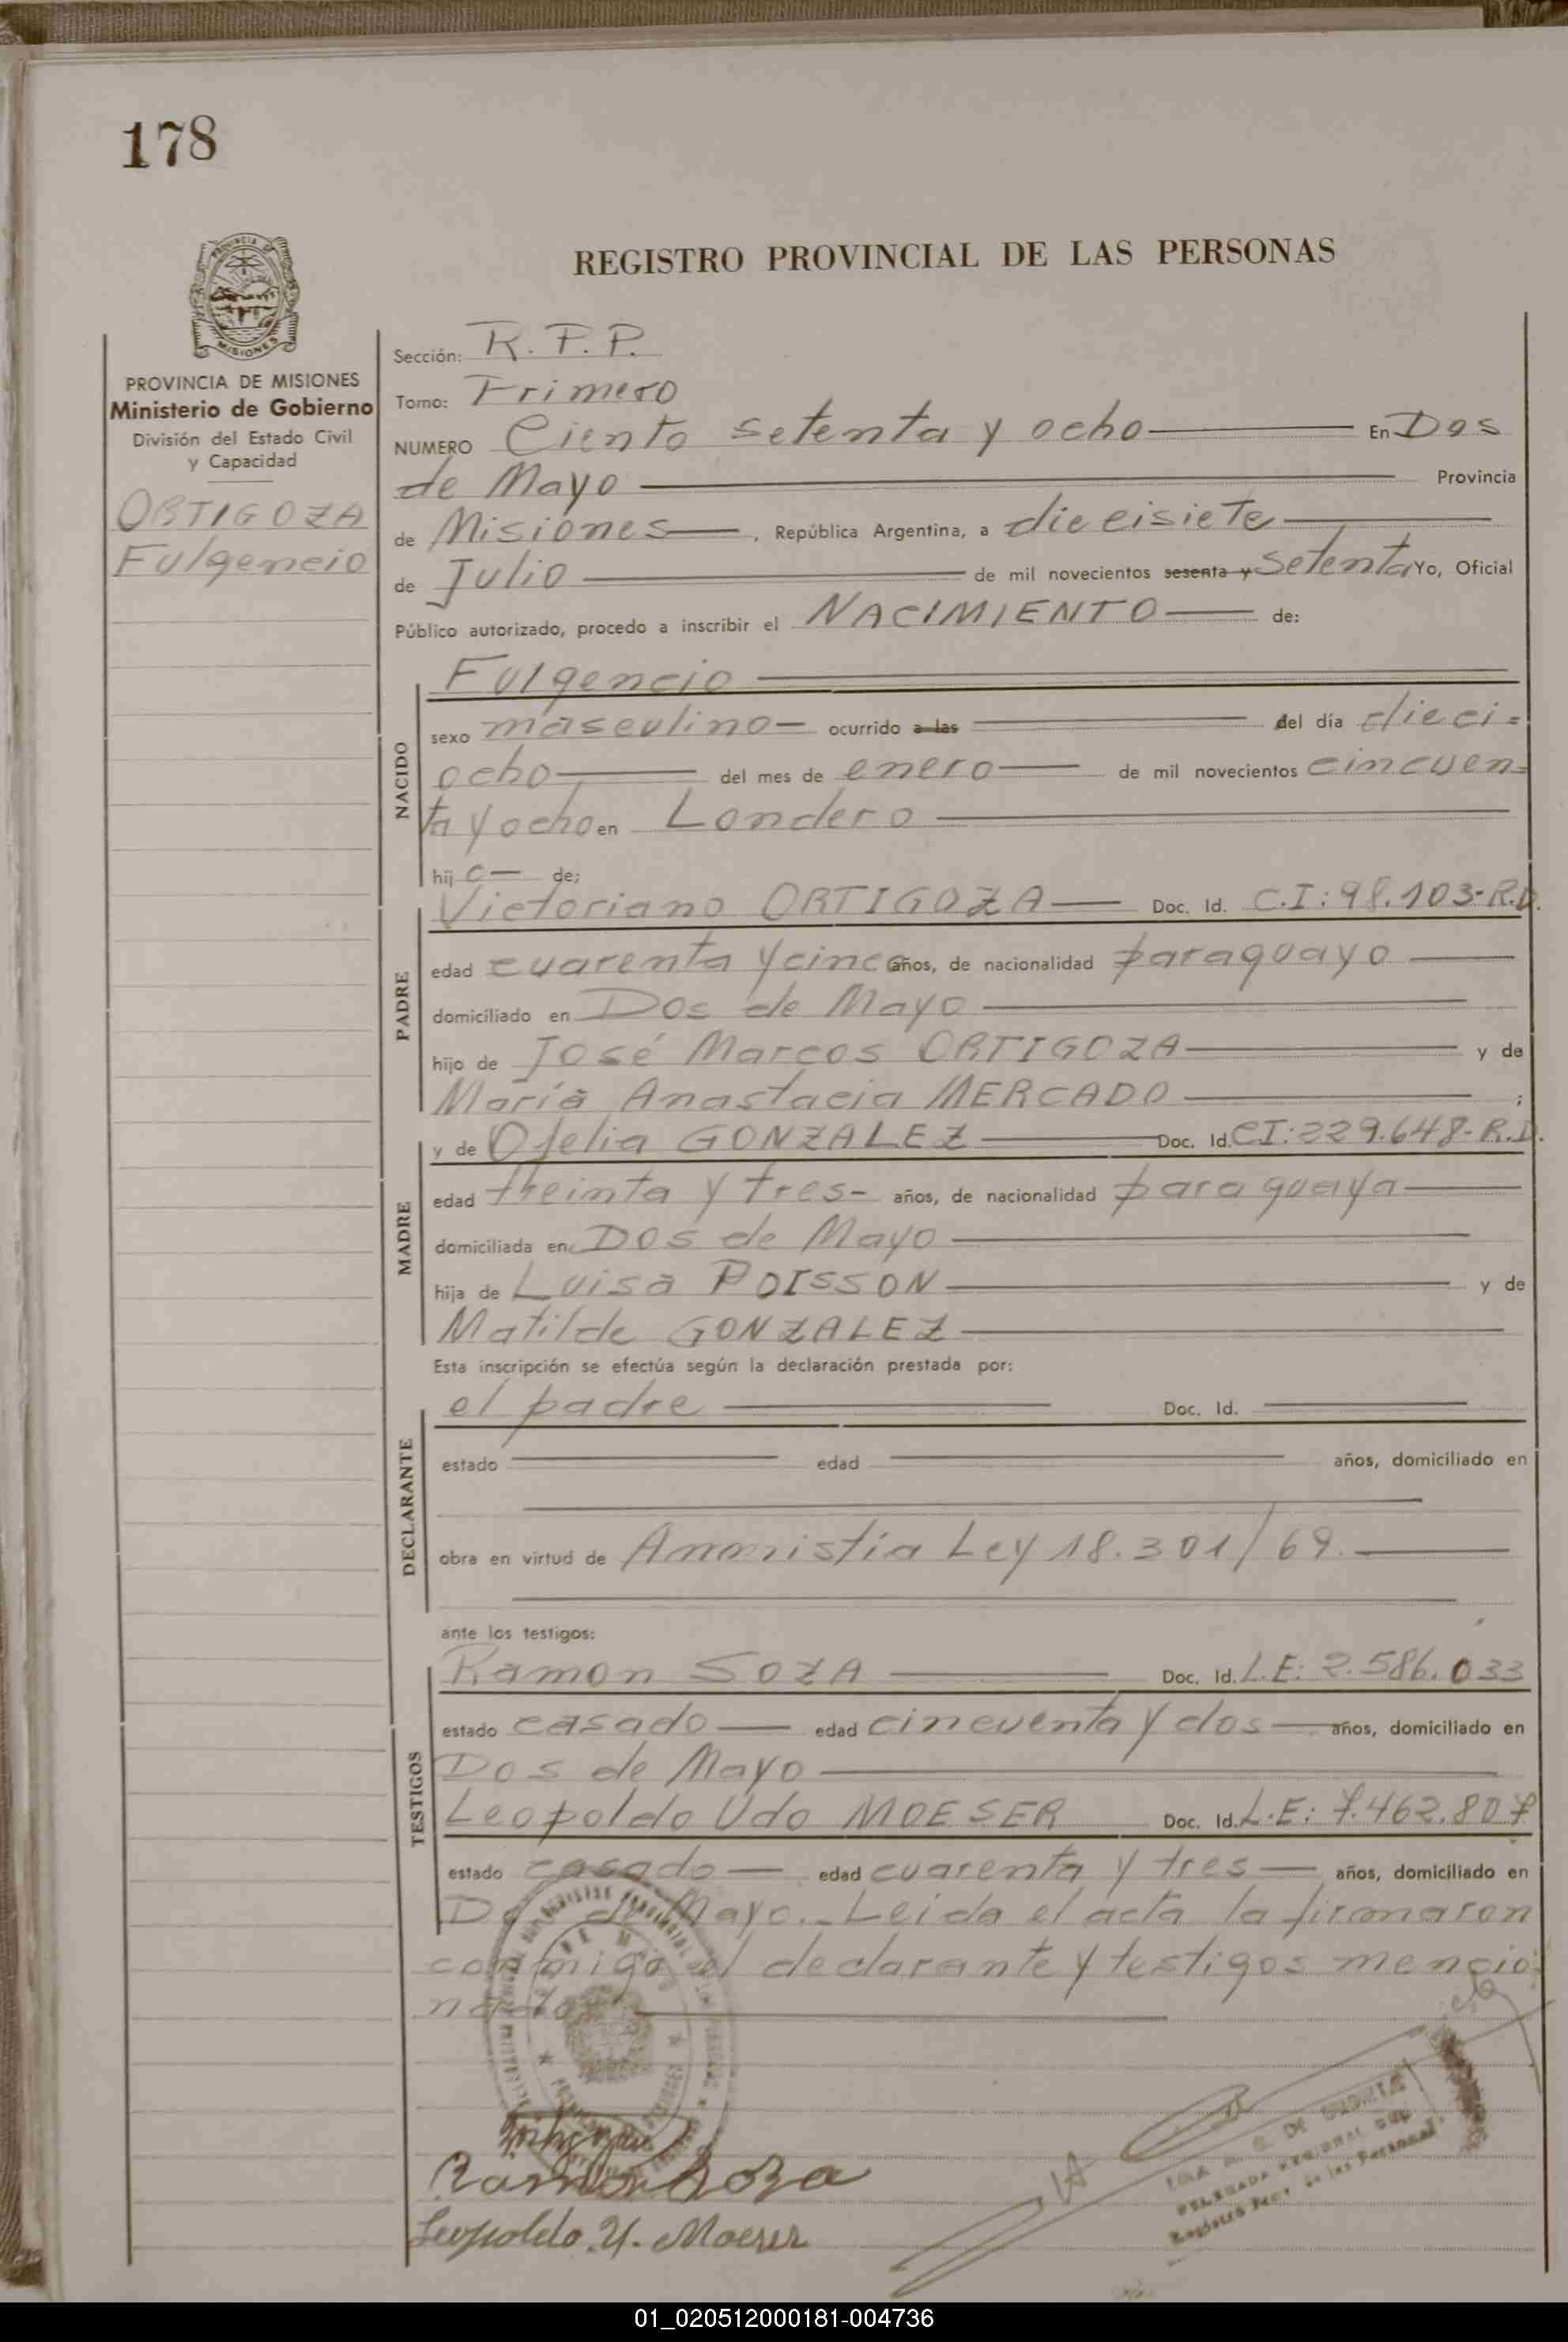 178
PROVINCIA DE MISIONES
Ministerio de Gobierno
División del Estado Civil
y Capacidad
ORTIGOZA
Fulgencio
REGISTRO PROVINCIAL DE LAS PERSONAS
Sección: R. P. P.
Tomo: Primero
NUMERO Ciento setenta y ocho En Dos
de Mayo Provincia
de Misiones, República Argentina, a diecisiete
de Julio de mil novecientos sesenta y setenta Yo, Oficial
Público autorizado, procedo a inscribir el NACIMIENTO de:
NACIDO
Fulgencio
sexo masculino ocurrido a las del día dieci=
ocho del mes de enero de mil novecientos cincuen=
ta y ocho en Londero
hijo de:
PADRE
Victoriano ORTIGOZA Doc. Id. C.I: 98.103-R.D.
edad cuarenta y cinco años, de nacionalidad paraguayo
domiciliado en Dos de Mayo
hijo de José Marcos ORTIGOZA y de
María Anastacia MERCADO ;
MADRE
y de Ofelia GONZALEZ Doc. Id. CI: 229.648-R.D.
edad treinta y tres- años, de nacionalidad paraguaya
domiciliada en Dos de Mayo
hija de Luisa POISSON y de
Matilde GONZALEZ
Esta inscripción se efectúa según la declaración prestada por:
DECLARANTE
el padre Doc. Id.
estado edad años, domiciliado en
obra en virtud de Amnistía Ley 18.301/69.
ante los testigos:
TESTIGOS
Ramon SOZA Doc. Id. L.E: 2.586.033
estado casado edad cincuenta y dos años, domiciliado en
Dos de Mayo
Leopoldo Udo MOESER Doc. Id. L.E: 7.462.807
estado casado edad cuarenta y tres años, domiciliado en
Dos de Mayo.- Leida el acta la firmaron
conmigo el declarante y testigos mencio=
nados
Ramon Soza
Leopoldo. U. Moeser
DE
DELEGADA REGIONAL DEL
Registro Prov. de las Personas
01_020512000181-004736